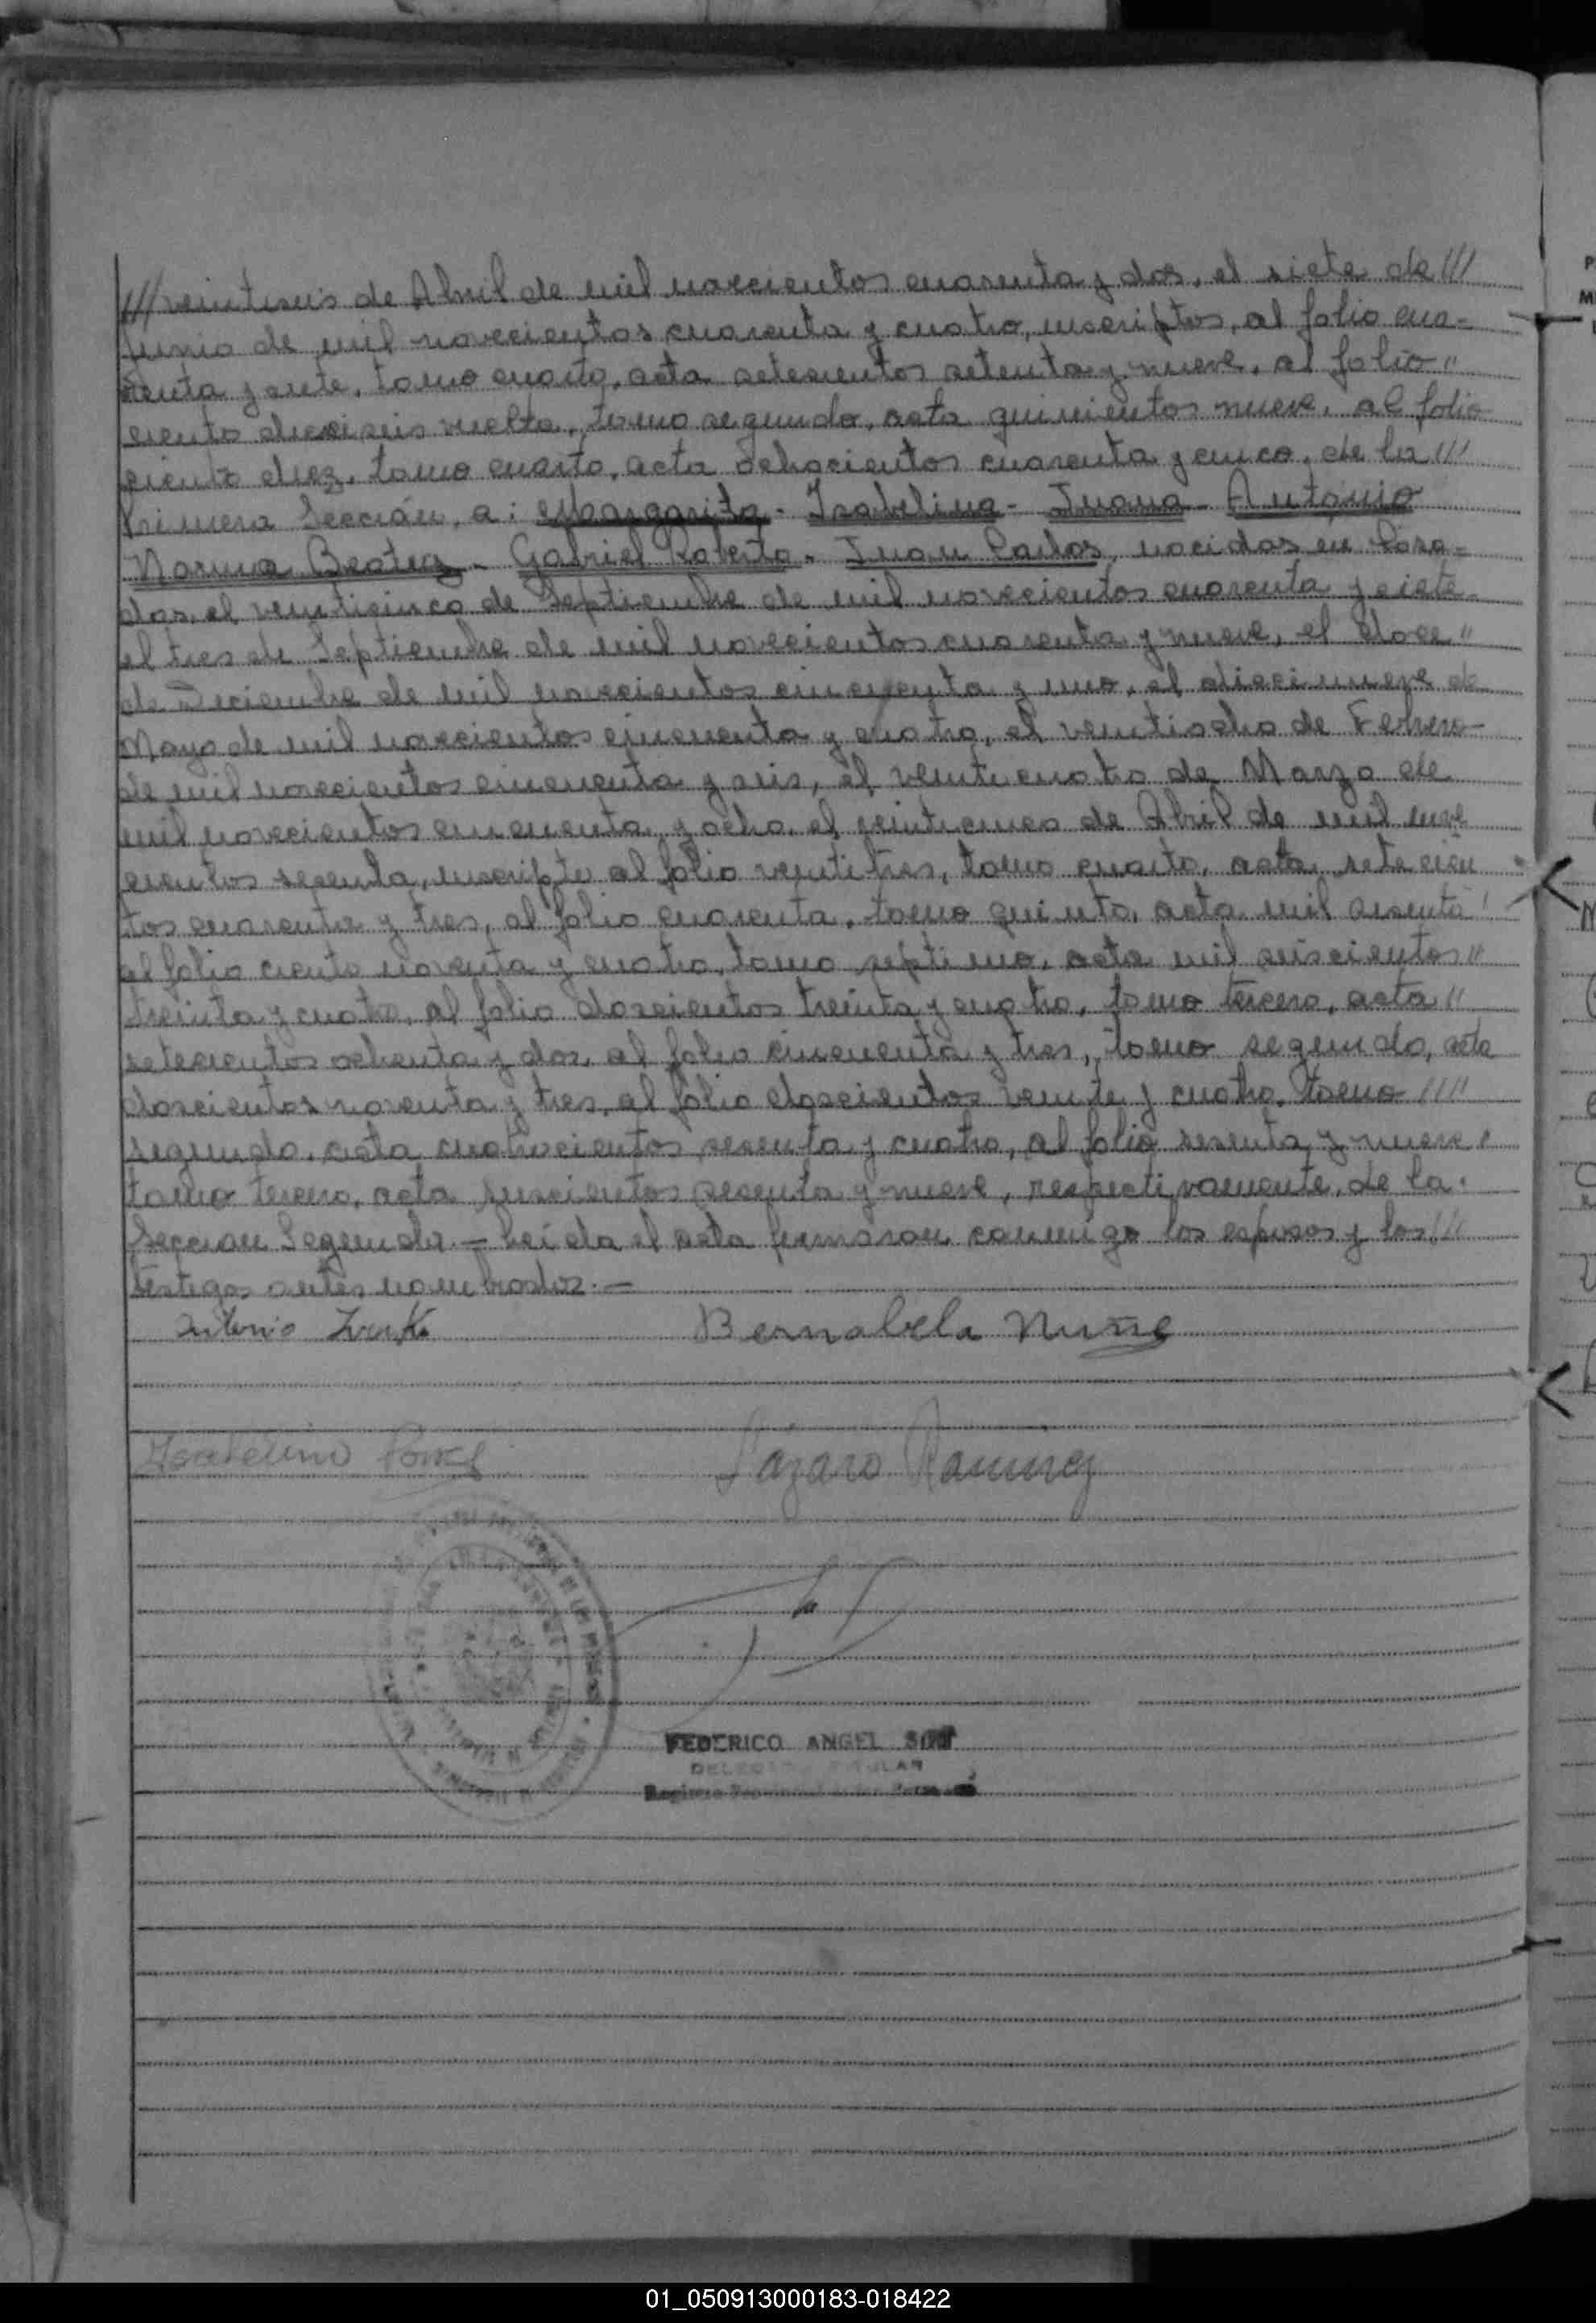 ///veintiseis de Abril de mil novecientos cuarenta y dos, el siete de ///
Junio de mil novecientos cuarenta y cuatro, inscriptos, al folio cua-
renta y siete, tomo cuarto, acta setecientos setenta y nueve, al folio "
ciento dieciseis vuelta, tomo segundo, acta quinientos nueve, al folio
ciento diez, tomo cuarto, acta ochocientos cuarenta y cinco, de la ///
Primera Sección, a: Margarita - Isabelina - Juana - Antonio
Norma Beatriz - Gabriel Roberto - Juan Carlos, nacidos en Posa-
das, el veinticinco de Septiembre de mil novecientos cuarenta y siete,
el tres de Septiembre de mil novecientos cuarenta y nueve, el doce "
de Diciembre de mil novecientos cincuenta y uno, el diecinueve de
Mayo de mil novecientos cincuenta y cuatro, el veintiocho de Febrero
de mil novecientos cincuenta y seis, el veinticuatro de Marzo de
mil novecientos cincuenta y ocho, el veinticinco de Abril de mil nove
cientos sesenta, inscripto al folio veintitres, tomo cuarto, acta setecien
tos cuarenta y tres, al folio cuarenta, tomo quinto, acta mil sesenta
al folio ciento noventa y cuatro, tomo septimo, acta mil seiscientos "
treinta y cuatro, al folio doscientos treinta y cuatro, tomo tercero, acta "
setecientos ochenta y dos, al folio cincuenta y tres, tomo segundo, acta
doscientos noventa y tres, al folio doscientos veinte y cuatro, tomo ////
segundo, acta cuatrocientos sesenta y cuatro, al folio sesenta y nueve,
tomo tercero, acta seiscientos sesenta y nueve, respectivamente, de la
Sección Segunda.- Leida el acta firmaron conmigo los esposos y los ///
testigos antes nombrados.-
Antonio
Bernabela Nuñe
Lázaro Ramirez
FEDERICO ANGEL
DELEGADO TITULAR
Registro Provincial de las Personas
01_050913000183-018422